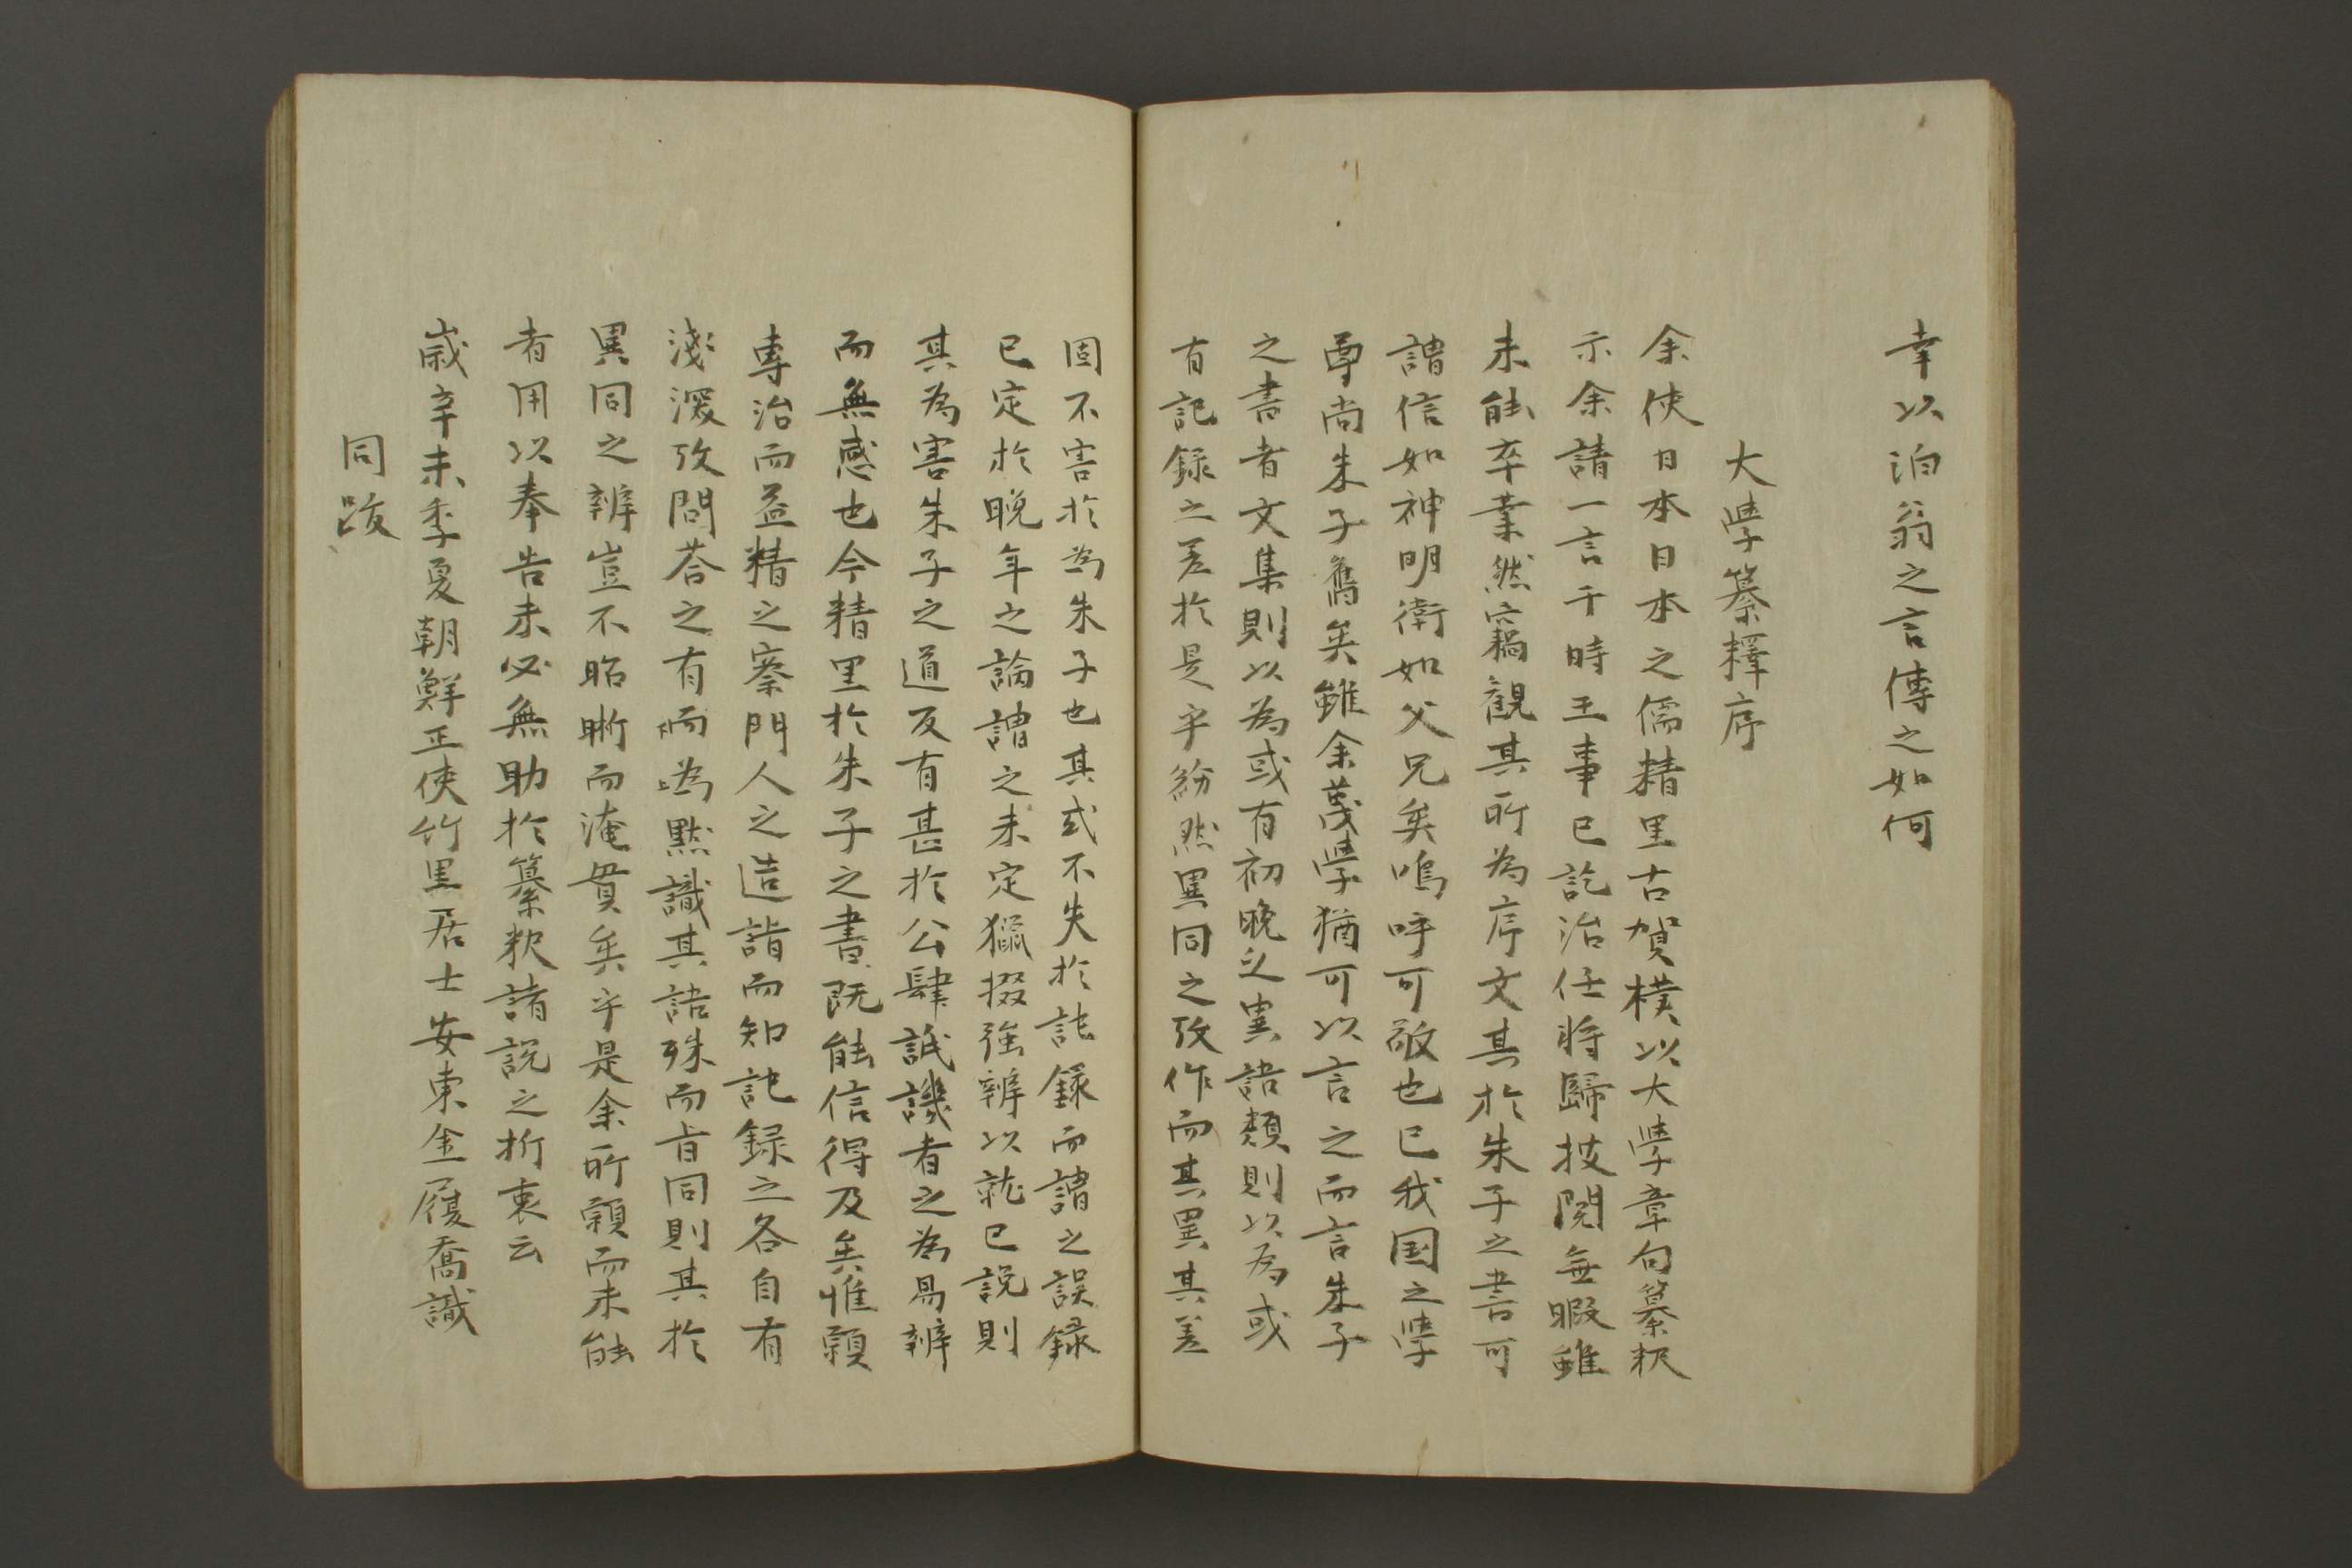 幸以泊翁之言傳之如何
大學纂釋序
余使日本日本之儒精里古賀樸以大學章句纂釈
示余請一言于時王事已訖治任將歸披閱無暇雖
未能卒業然竊觀其所為序文其於朱子之書可
謂信如神明衛如父兄矣嗚呼可敬也已我国之學
尊尚朱子舊矣雖余蔑學猶可以言之而言朱子
之書者文集則以為或有初晚之異語類則以為或
有記録之差於是乎紛然異同之攷作而其異其差
固不害於為朱子也其或不失於記録而謂之誤録
已定於晚年之論謂之未定獵掇強辨以就已說則
其為害朱子之道反有甚於公肆詆譏者之為易辨
而無惑也今精里於朱子之書既能信得及矣惟願
專治而益精之察門人之造詣而知記録之各自有
淺深攷問荅之有為而為默識其語殊而旨同則其於
異同之辨豈不昭晰而淹貫矣乎是余所願而未能
者用以奉告未必無助於纂釈諸說之折衷云
歲辛未季夏朝鮮正使竹里居士安東金履喬識
同跋